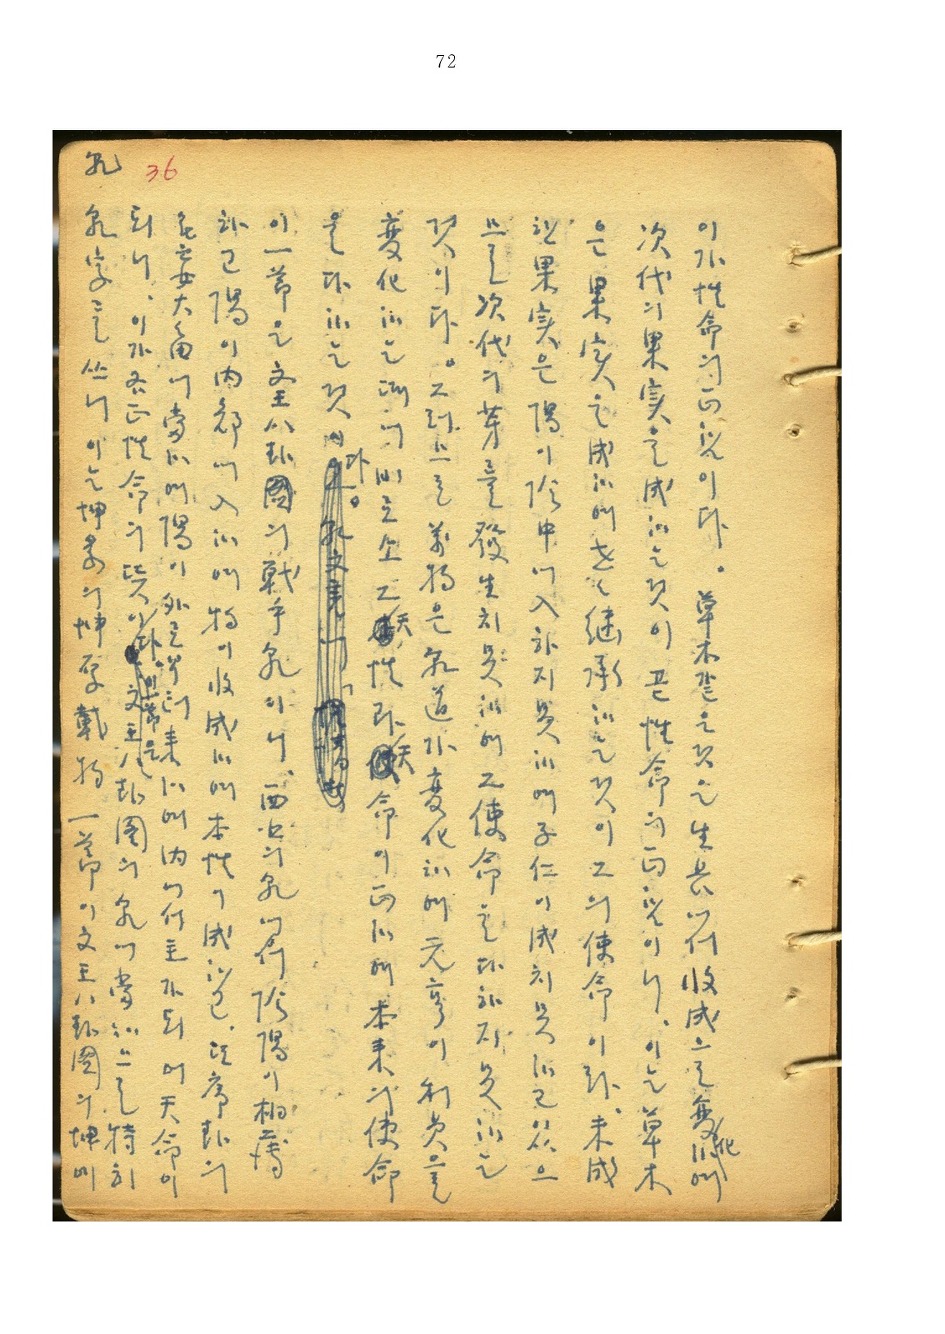 72
36
乾
이가性命의正홈이다。草木같은것은生長에서收成으로變化하며
次代의果實을成하는것이곧性命의正홈이니、이는草木
은果實을成하며世을継承하는것이그의使命이라、未成
한果實은陽이陰中에入하지못하며子仁이成치못하고
므로次代의芽를發生치못하며그使命을다하지못하는
것이다。그러므로萬物은乾道가變化하며元亨이利貞을
變化하는데에비로소그天性과天命이正하며本来의使命
을다하는것이다。
이一節은文王八卦圖의戰乎乾이니、西北의乾에서陰陽이相薄
하고陽이内部에入하며物이收成하며本性이成하고、또序卦의
无妄大畜에當하며陽이外로부터来하며内에서主가되며天命이
되니、이가各正性命의뜻이다。이節은文王八卦圖의乾에當하므로特히
乾字를쓰니이는坤彖의坤厚載物一節이文王八卦圖의坤에